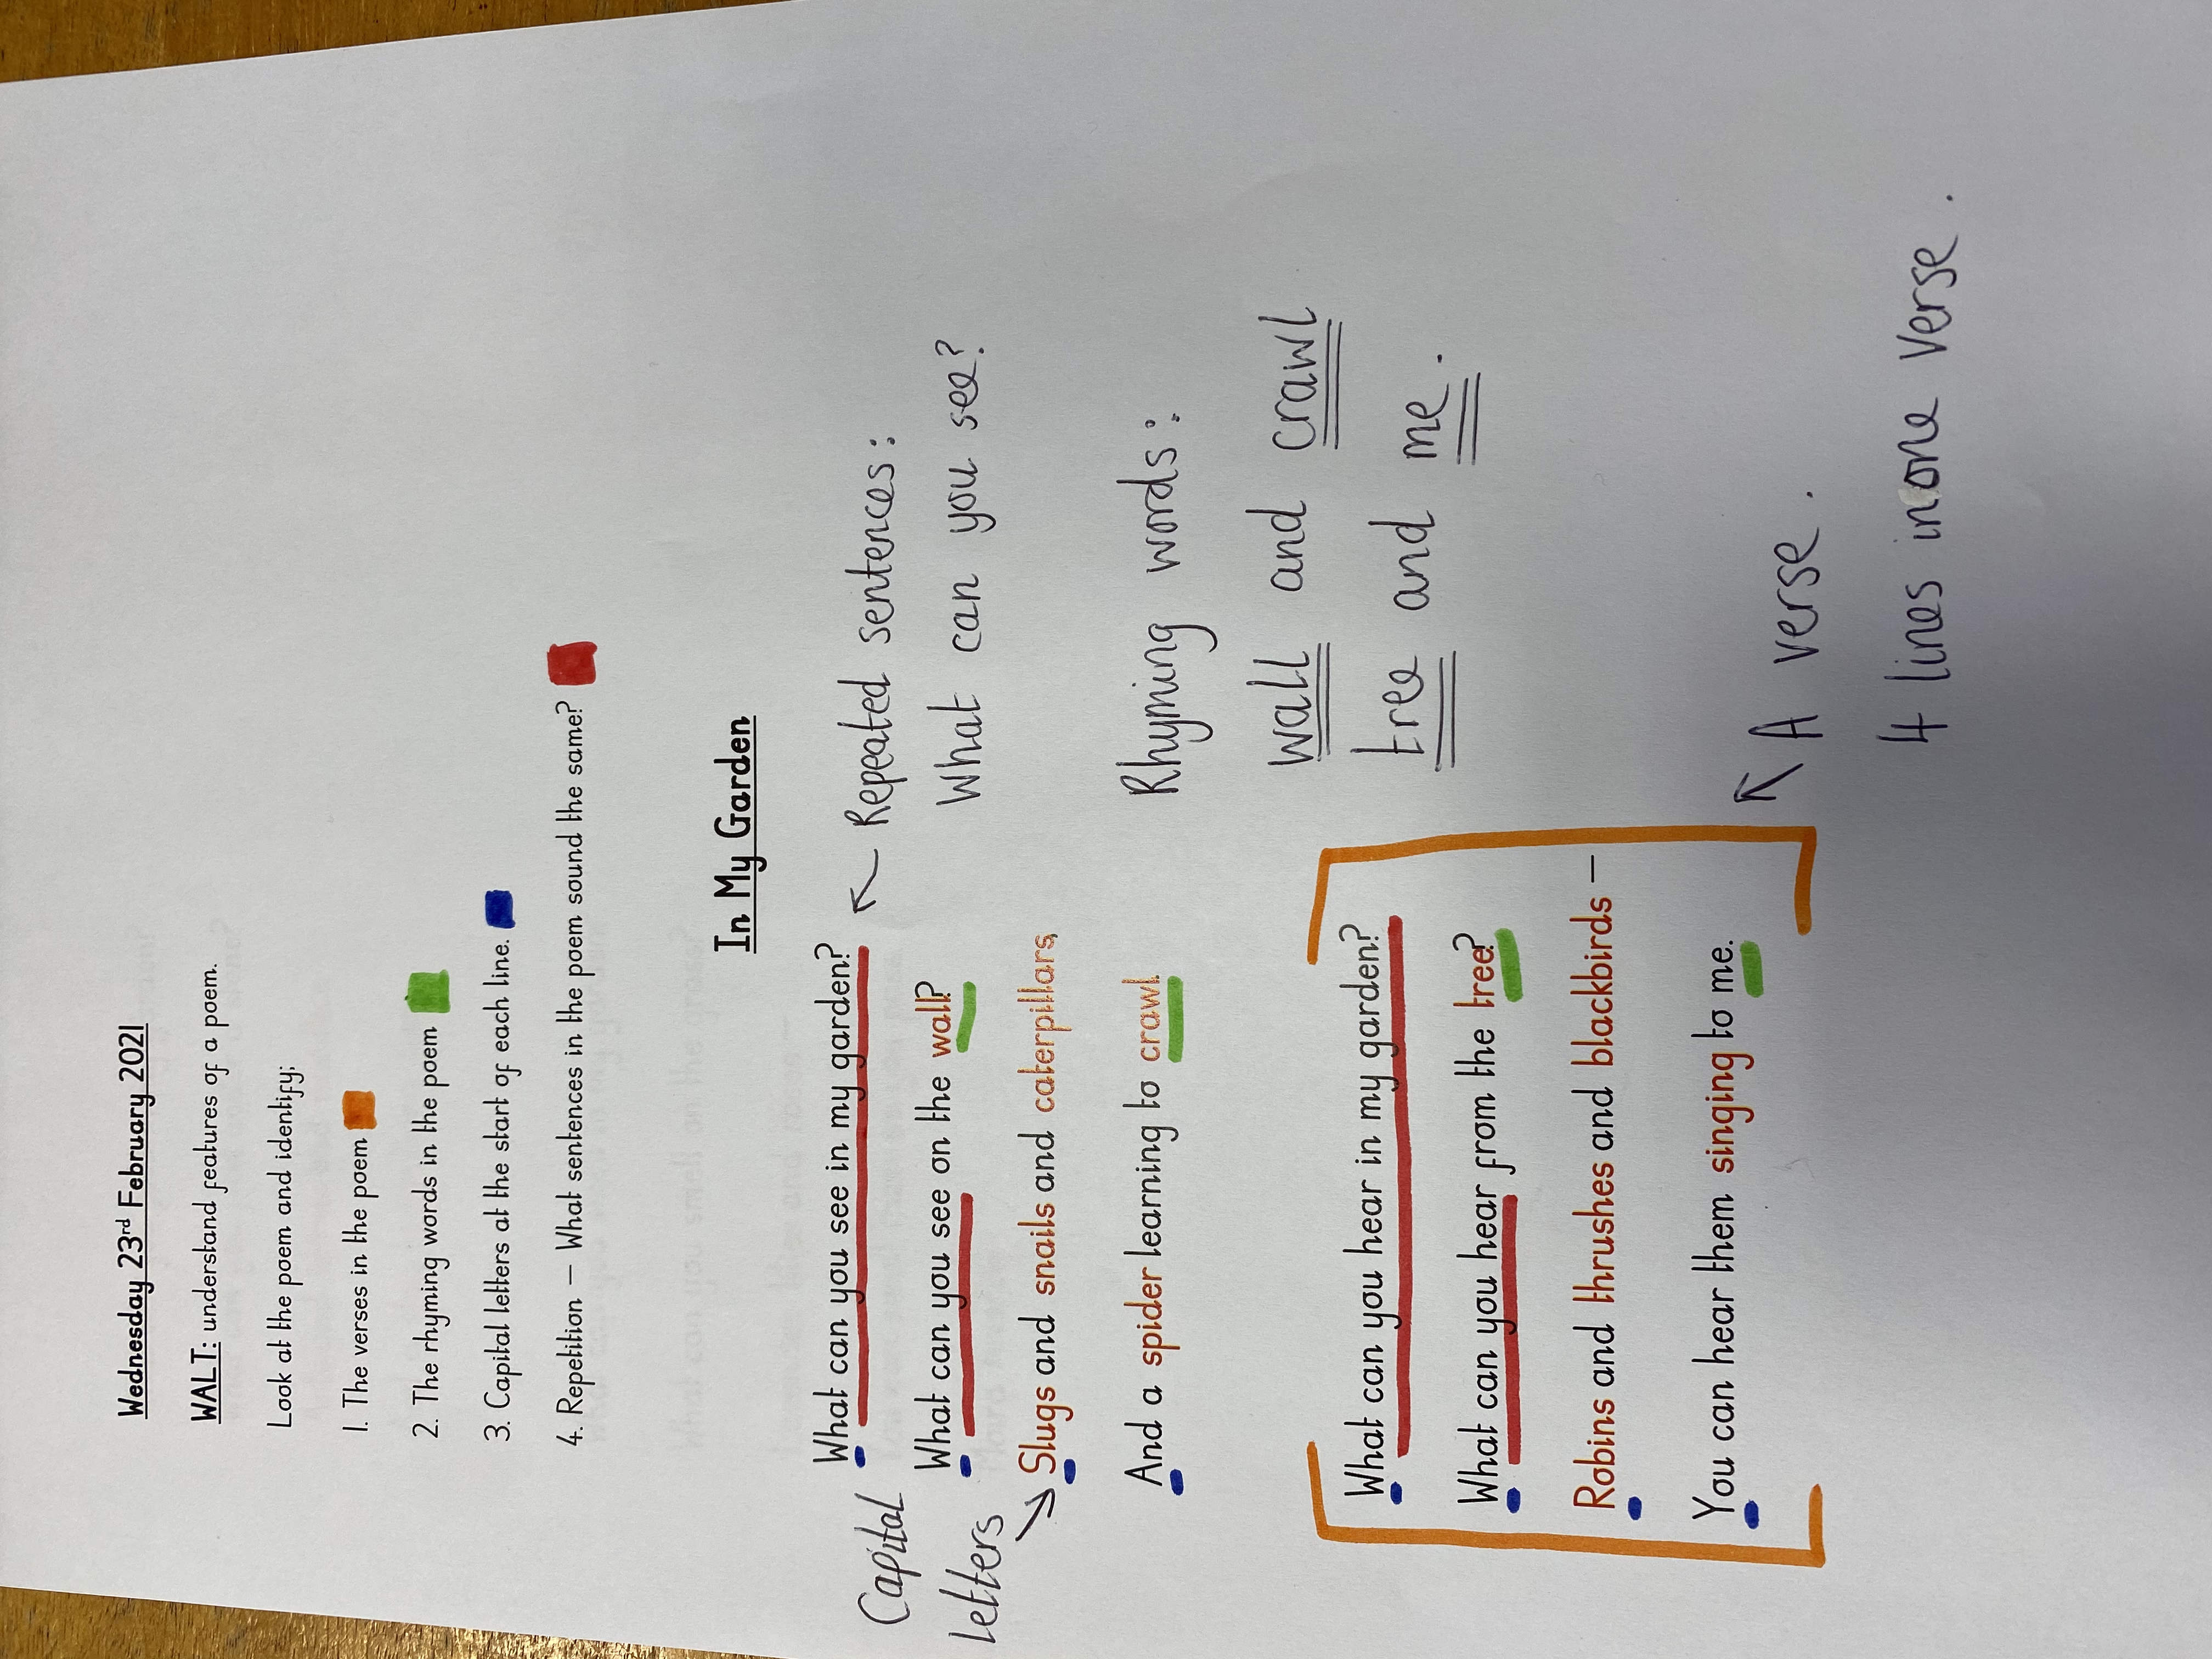 Wednesday 23rd February 2021
WALT: understand features of a poem.
Look at the poem and identify;
1. The verses in the poem
2. The rhyming words in the poem
3. Capital letters at the start of each line.
4. Repetition – What sentences in the poem sound the same?
In My Garden
Capital
letters
What can you see in my garden?
What can you see on the wall?
Slugs and snails and caterpillars,
And a spider learning to crawl.
Repeated sentences:
What can you see?
Rhyming words:
wall and crawl
tree and me.
What can you hear in my garden?
What can you hear from the tree?
Robins and thrushes and blackbirds –
You can hear them singing to me.
A verse.
4 lines in one verse.